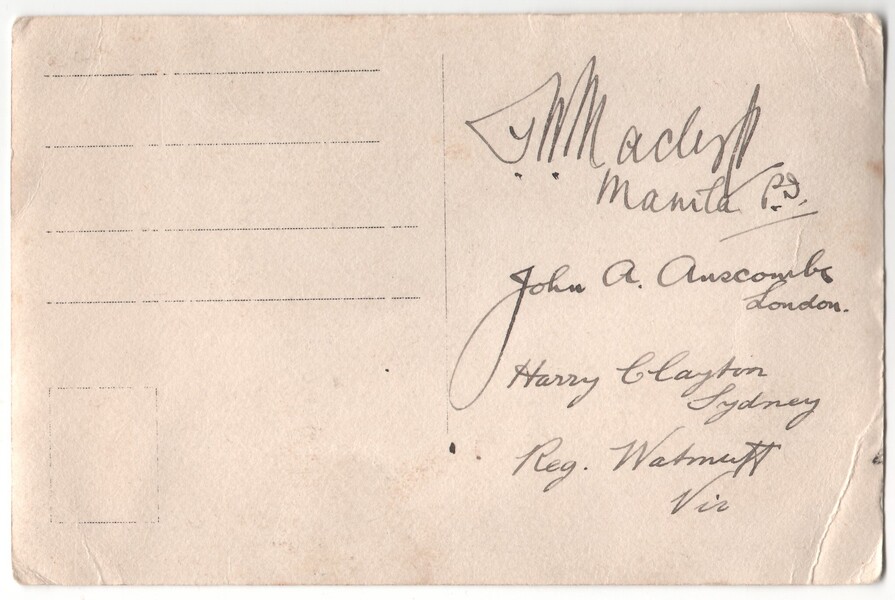 Manila P.I.
John A. Anscombe
London.
Harry Clayton
Sydney
Reg. Watmuff
Vic